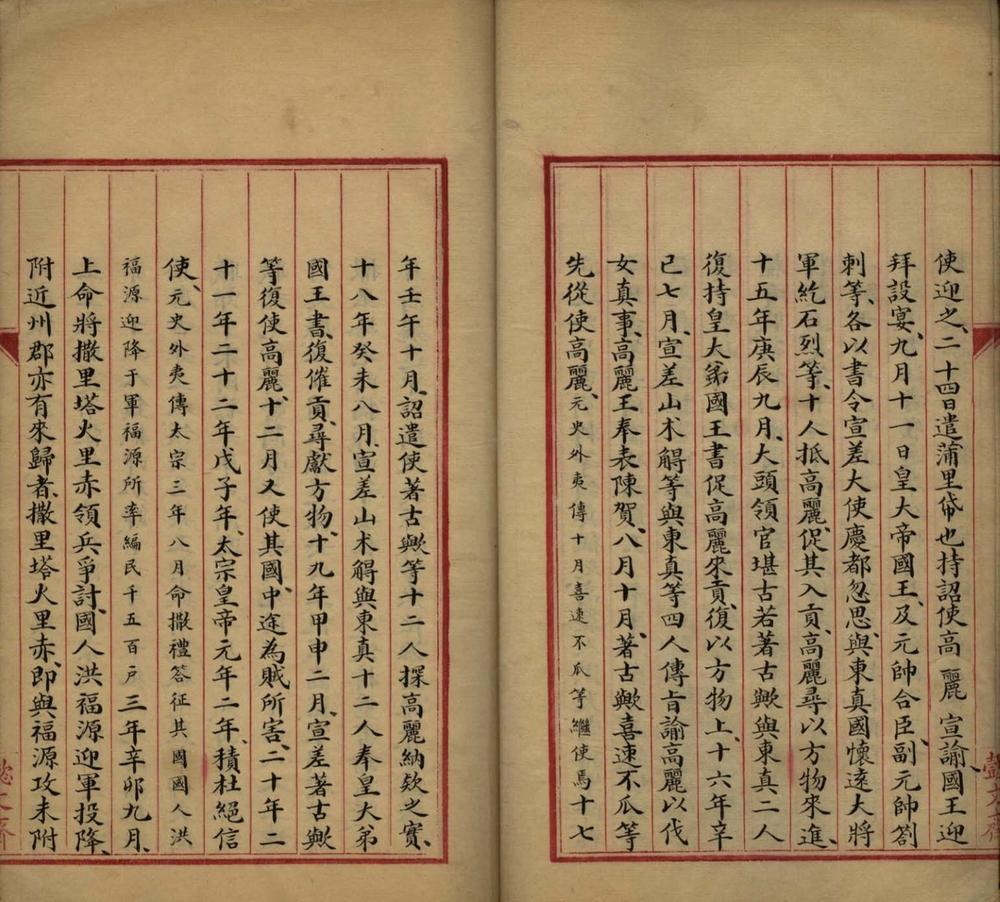 使迎之、二十四日遣蒲里帒也持詔使高麗宣諭、國王迎
拜設宴、九月十一日皇大帝國王、及元帥合臣、副元帥劄
刺等、各以書令宣差大使慶都忽思、與東真國懷遠大將
軍紇石烈等、十人抵高麗、促其入貢、高麗尋以方物來進、
十五年庚辰九月、大頭領官堪古若著古歟與東真二人
復持皇大弟國王書促高麗來貢、復以方物上、十六年辛
巳七月、宣差山术䚟等與東真等四人傳旨諭高麗以伐
女真事、高麗王奉表陳賀、八月十月、著古歟喜速不瓜等
先從使高麗、元史外夷傳十月喜速不瓜等繼使馬十七
年壬午十月、詔遣使著古歟等十二人探高麗納欵之實、
十八年癸未八月、宣差山术䚟與東真十二人奉皇大弟
國王書、復催貢、尋獻方物、十九年甲申二月、宣差著古歟
等復使高麗、十二月又使其國、中途為賊所害、二十年二
十一年二十二年戊子年、太宗皇帝元年二年、積杜絕信
使、元史外夷傳太宗三年八月命撒禮答征其國國人洪
福源迎降于軍福源所率編民千五百戶三年辛卯九月、
上命將撒里塔火里赤領兵爭討、國人洪福源迎軍投降、
附近州郡亦有來歸者、撒里塔火里赤、即與福源攻未附